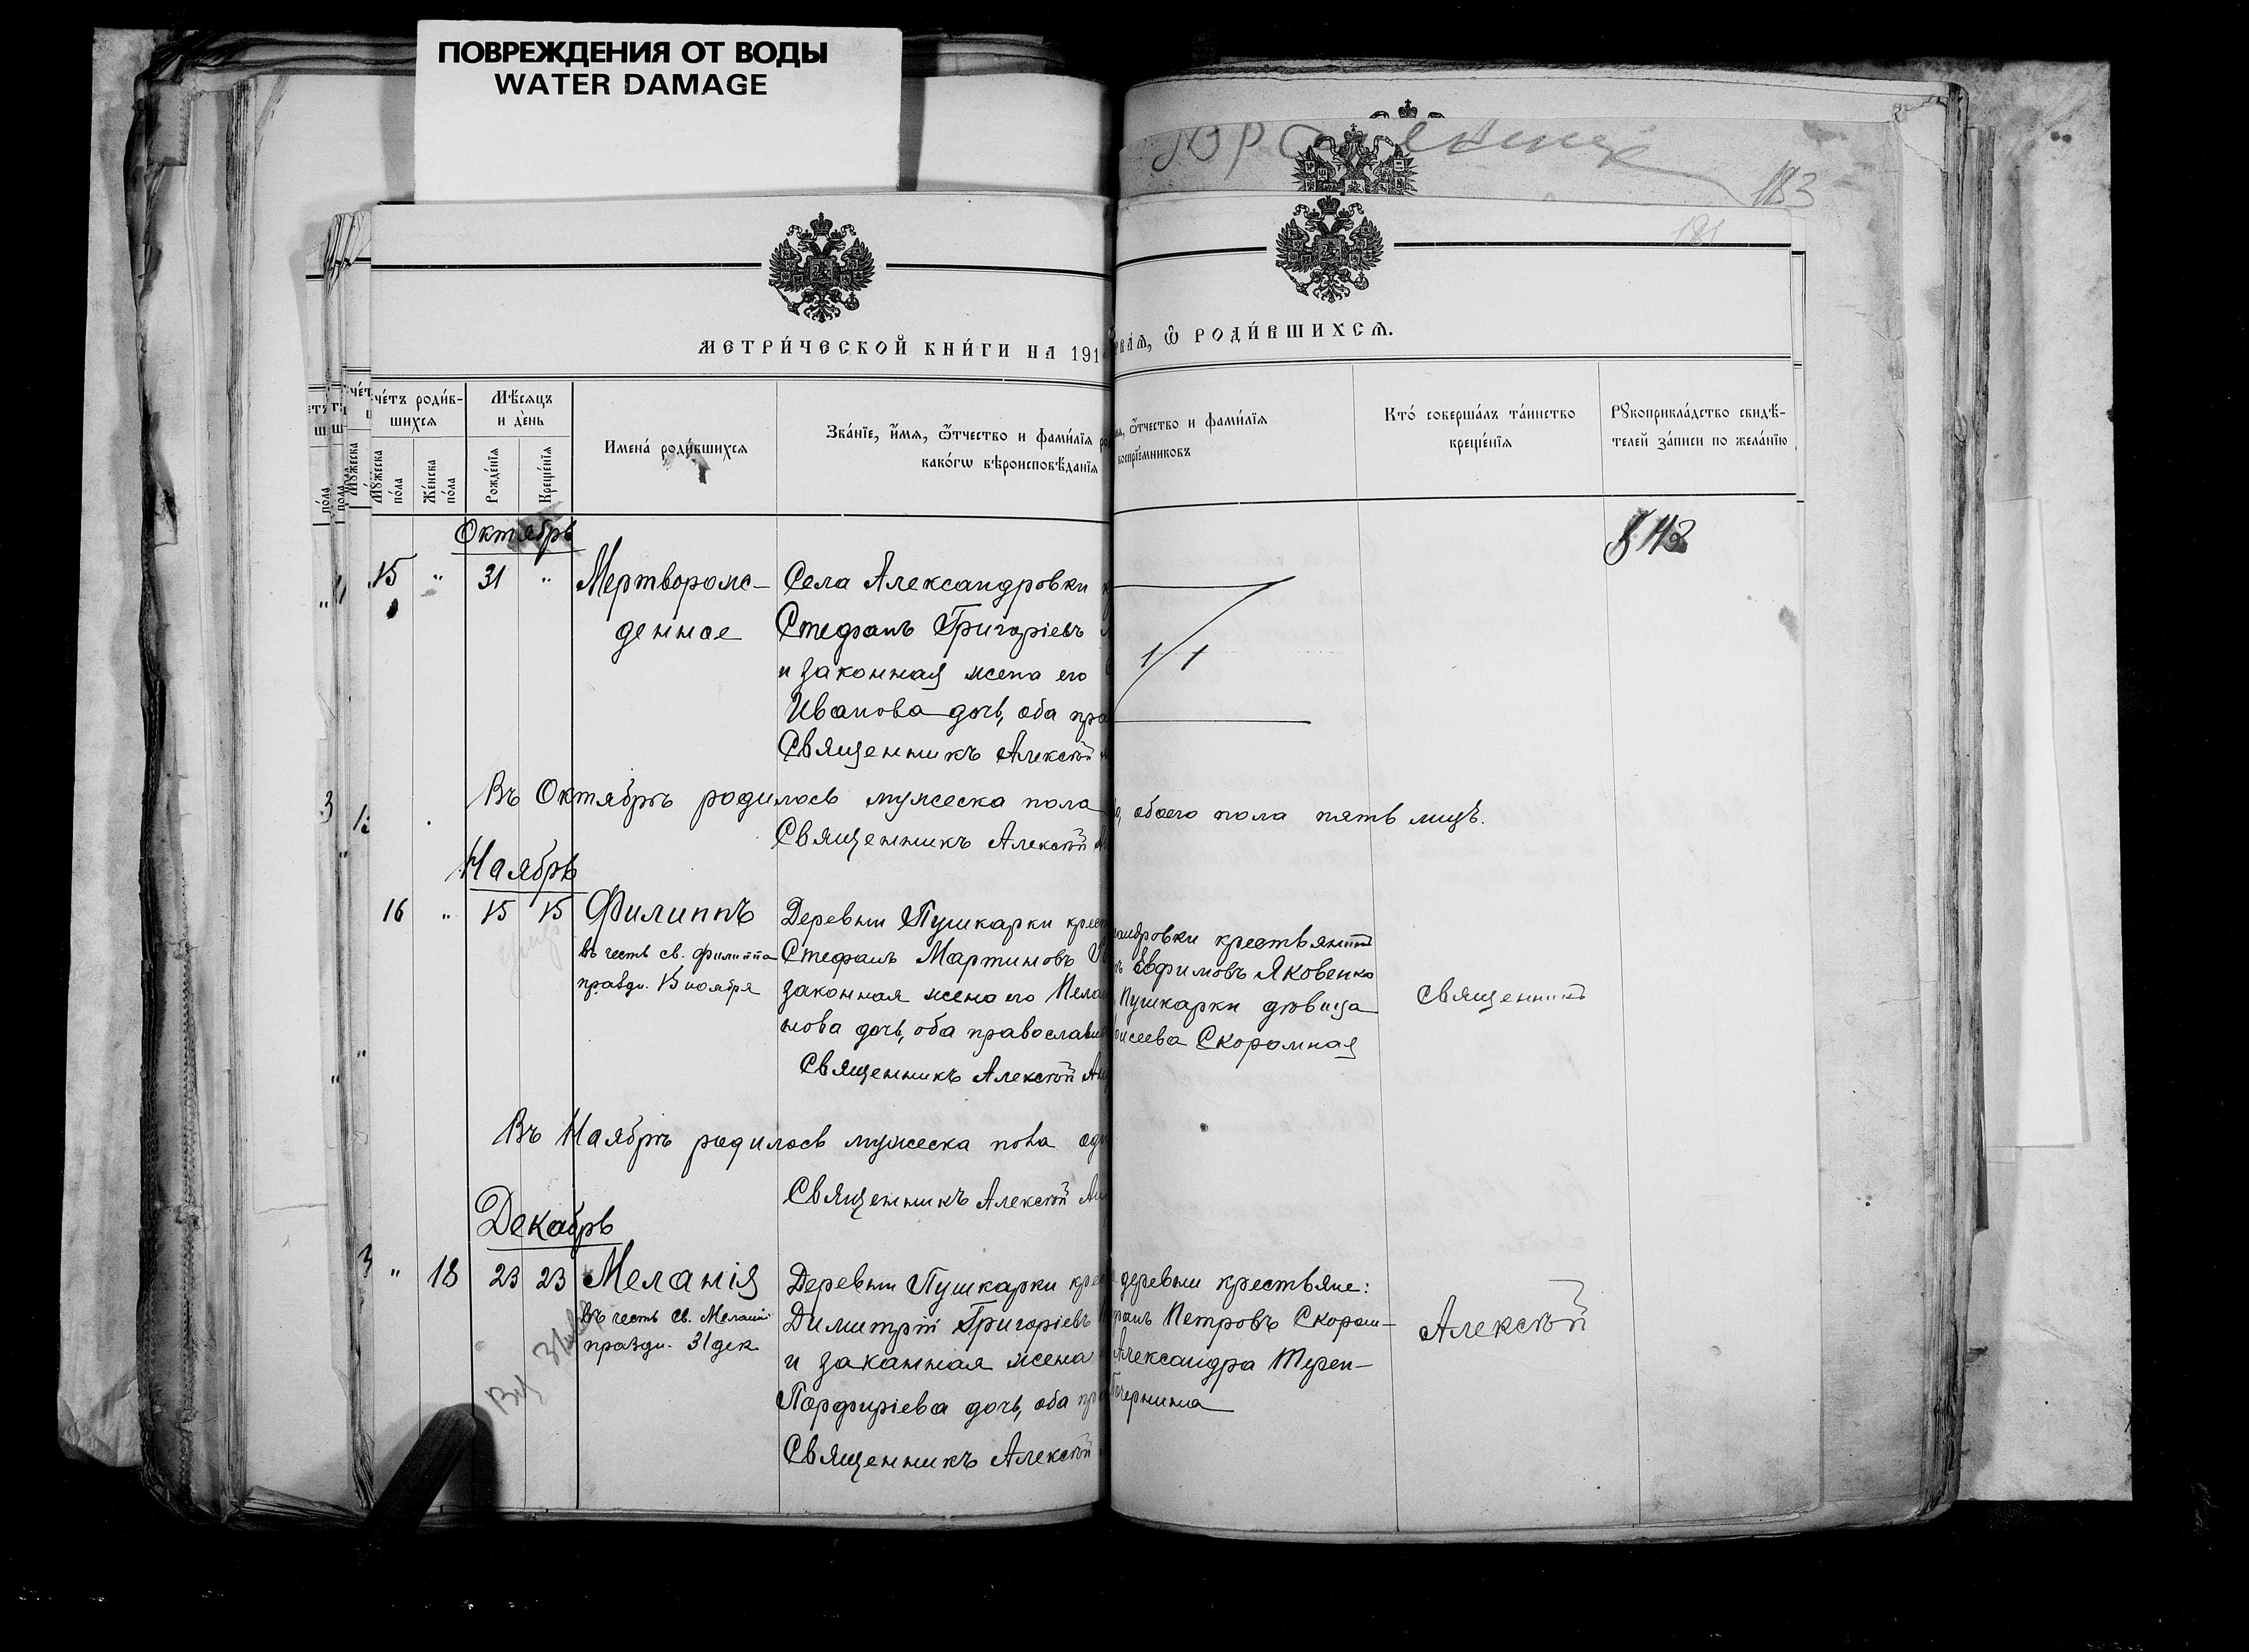 ПОВРЕЖДЕНИЯ ОТ ВОДЫ
WATER DAMAGE
183
181
МЕТРИ́ЧЕСКОЙ КНИ́ГИ НА 191
РВА́Я, Ѿ РОДИ́ВШИХСЯ.
че́тъ роди́в-
шихся
Мѣ́сяцъ
и де́нь
Мꙋ́жеска по́ла
Же́нска по́ла
Рожде́нїя
Креще́нїя
Имена̀ роди́вшихся
Зва́нїе, и́мя, ѻ҆́тчество и фами́лїя
како́гѡ вѣроисповѣ́данїя
ѻ҆́тчество и фами́лїя
воспрїе́мниковъ
Кто́ соверша́лъ та́инство
креще́нїя
Рꙋкоприкла́дство свидѣ́-
телей за́писи по жела́нїю
Октябрь
15 " 31 " Мерторож-
денное
Села Александровки
Стефанъ Григоріевъ
и законная жена его
Иванова дочь, оба пра
Священникъ Алексѣй
Въ Октябрѣ родилось мужеска пола
обоего пола пять лицъ.
Священникъ Алексѣй
Ноябрь
16 " 15 15 Филиппъ
въ честь св. Филиппа
праздн. 15 ноября
Деревни Пушкарки крест
Стефанъ Мартиновъ
законная жена его Пела
нова дочь, оба православн
Священникъ Алексѣй
андровки крестьянинъ
Евфимовъ Яковенко
Пушкарки дѣвица
исеева Скоромная
Священникъ
Въ Ноябрѣ родилось мужеска пола
Священникъ Алексѣй
Декабрь
" 18 23 23 Меланія
въ честь св. Меланіи
праздн. 31 дек
Деревни Пушкарки кре
Димитрій Григоріевъ
и законная жена
Порфиріева дочь, оба пр
Священникъ Алексѣй
деревни крестьяне:
Петровъ Скором-
Александра Терен-
Алексѣй